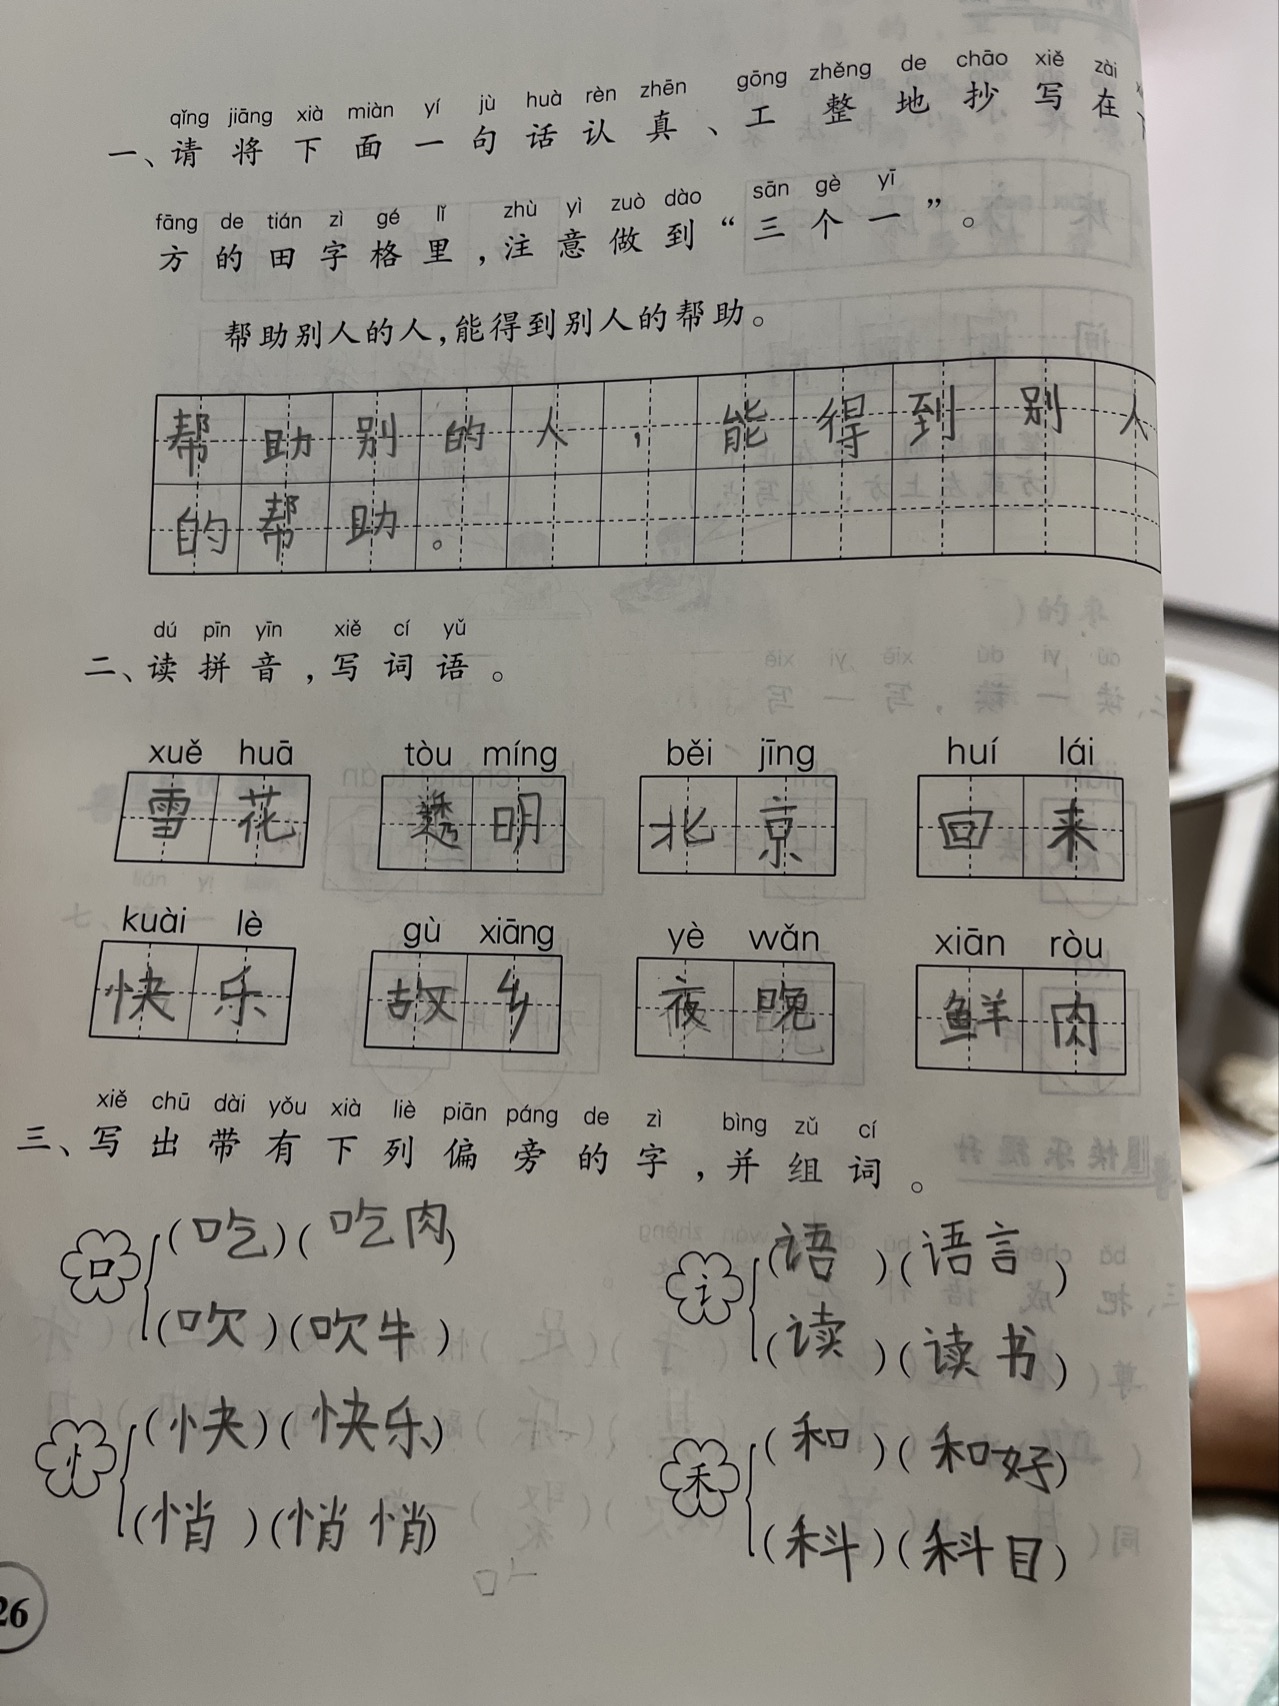 qǐng jiāng xià miàn yí jù huà rèn zhēn gōng zhěng de chāo xiě zài
一、请将下面一句话认真、工整地抄写在下
fāng de tián zì gé lǐ zhù yì zuò dào sān gè yī
方的田字格里,注意做到“三个一”。
帮助别人的人,能得到别人的帮助。
帮助别的人,能得到别人
的帮助。
dú pīn yīn xiě cí yǔ
二、读拼音,写词语。
xuě huā tòu míng běi jīng huí lái
雪花 透明 北京 回来
kuài lè gù xiāng yè wǎn xiān ròu
快乐 故乡 夜晚 鲜肉
xiě chū dài yǒu xià liè piān páng de zì bìng zǔ cí
三、写出带有下列偏旁的字,并组词。
(吃)(吃肉) (语)(语言)
口 讠
(吹)(吹牛) (读)(读书)
(快)(快乐) (和)(和好)
忄 禾
(悄)(悄悄) (科)(科目)
26